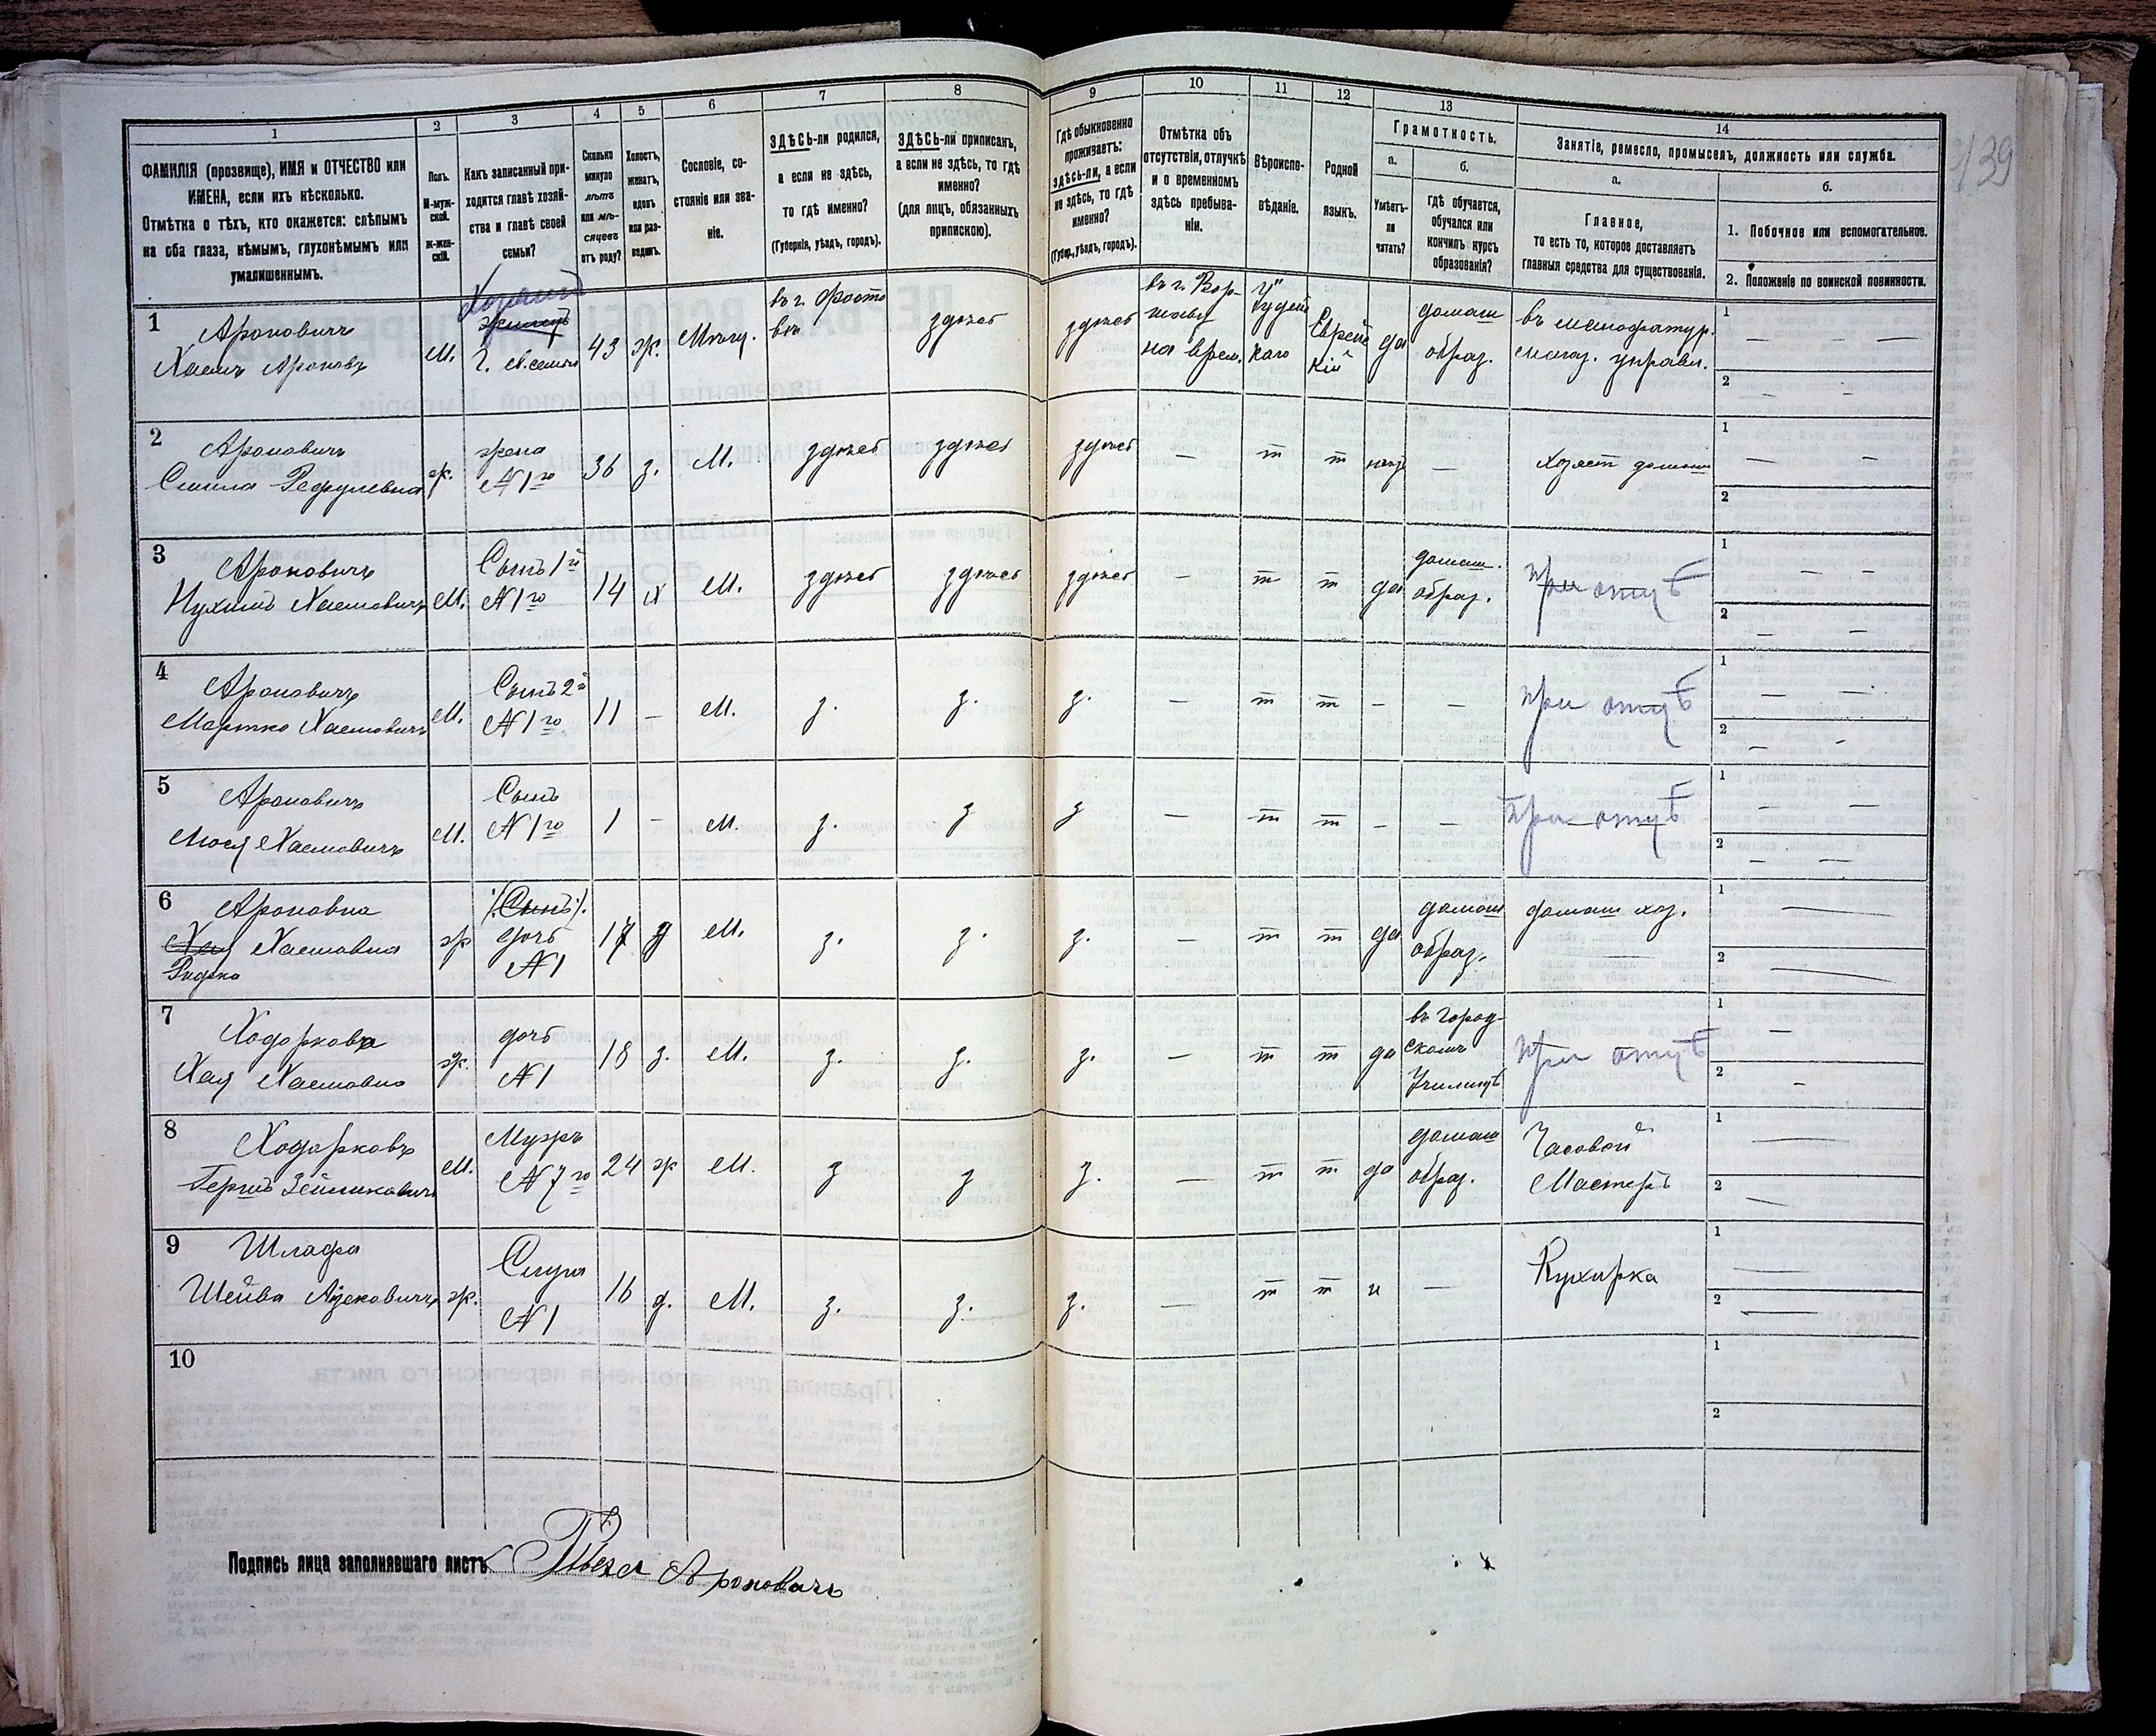 139
1 2 3 4 5 6 7 8 9 10 11 12 13 14
ФАМИЛІЯ (прозвище), ИМЯ и ОТЧЕСТВО или
ИМЕНА, если ихъ нѣсколько.
Отмѣтка о тѣхъ, кто окажется: слѣпымъ
на оба глаза, нѣмымъ, глухонѣмымъ или
умалишеннымъ.
Полъ.
М-муж-
ской.
Ж-жен-
скій.
Какъ записанный при-
ходится главѣ хозяй-
ства и главѣ своей
семьи?
Сколько
минуло
лѣтъ
или мѣ-
сяцевъ
отъ роду?
Холостъ,
женатъ,
вдовъ
или раз-
веденъ.
Сословіе, со-
стояніе или зва-
ніе.
ЗДѢСЬ-ли родился,
а если не здѣсь,
то гдѣ именно?
(Губернія, уѣздъ, городъ).
ЗДѢСЬ-ли приписанъ,
а если не здѣсь, то гдѣ
именно?
(для лицъ, обязанныхъ
припискою).
Гдѣ обыкновенно
проживаетъ:
здѣсь-ли, а если
не здѣсь, то гдѣ
именно?
(Губер., уѣздъ, городъ).
Отмѣтка объ
отсутствіи, отлучкѣ
и о временномъ
здѣсь пребыва-
ніи.
Вѣроиспо-
вѣданіе.
Родной
языкъ.
Грамотность.
а.
Умѣетъ-
ли
читать?
б.
гдѣ обучается,
обучался или
кончилъ курсъ
образованія?
Занятіе, ремесло, промыселъ, должность или служба.
а.
Главное,
то есть то, которое доставляетъ
главныя средства для существованія.
б.
1. Побочное или вспомогательное.
2. Положеніе по воинской повинности.
1 Ароновичъ
Хаимъ Ароновъ
М.
Хозяинъ
Г. св. семьи
43 ж. Мѣщ.
въ г. Фасто
вѣ
здѣсь здѣсь
въ г. Вар-
шавѣ
на врем.
Іудей
каго
Еврейс
кій
да
домаш
образ.
въ мануфактур.
магаз. управл.
1 — — —
2 — —
2 Ароновичъ
ж.
жена
№ 1го
36 з. М. здѣсь здѣсь здѣсь — т т —
Хозяст домаш
1 — —
2
3 Ароновичъ
Нухимъ Хаимовичъ
М.
Сынъ 1й
№ 1го
14 х М. здѣсь здѣсь здѣсь - т т да
домаш.
образ.
при отцѣ
1 — —
2 — —
4 Ароновичъ
Мартко Хаимовичъ
М.
Сынъ 2й
№ 1го
11 — М. з. з. з. — т т - —
при отцѣ
1 — —
2 — -
5 Ароновичъ
Мося Хаимовичъ
М.
Сынъ
№ 1го
1 - М. з. з з — т т - —
При отцѣ
1 — —
2 — —
6 Ароновна
Хая Хаимовна
ж
Сынъ
дочь
№ 1
17 д М. з. з. з. - т т да
домаш
образ.
домаш хоз.
1 —
2 —
7 Ходоркова
Хая Хаимовна
ж.
дочь
№ 1
18 з. М. з. з. з. — т т да
въ город-
скомъ
Училищѣ
при отцѣ
1 —
2 -
8 Ходорковъ
Гершъ Зейликовичъ
М.
Мужъ
№ 7го
24 ж М. з з з. — т т да
домаш
образ.
Часовой
Мастеръ
1 —
2 —
9 Шлафа
Шейва
ж.
Слуга
№ 1
16 д. М. з. з. з. — т т н —
Кухарка
1 —
2 —
10
1
2
Подпись лица заполнявшаго листъ
Ароновичъ